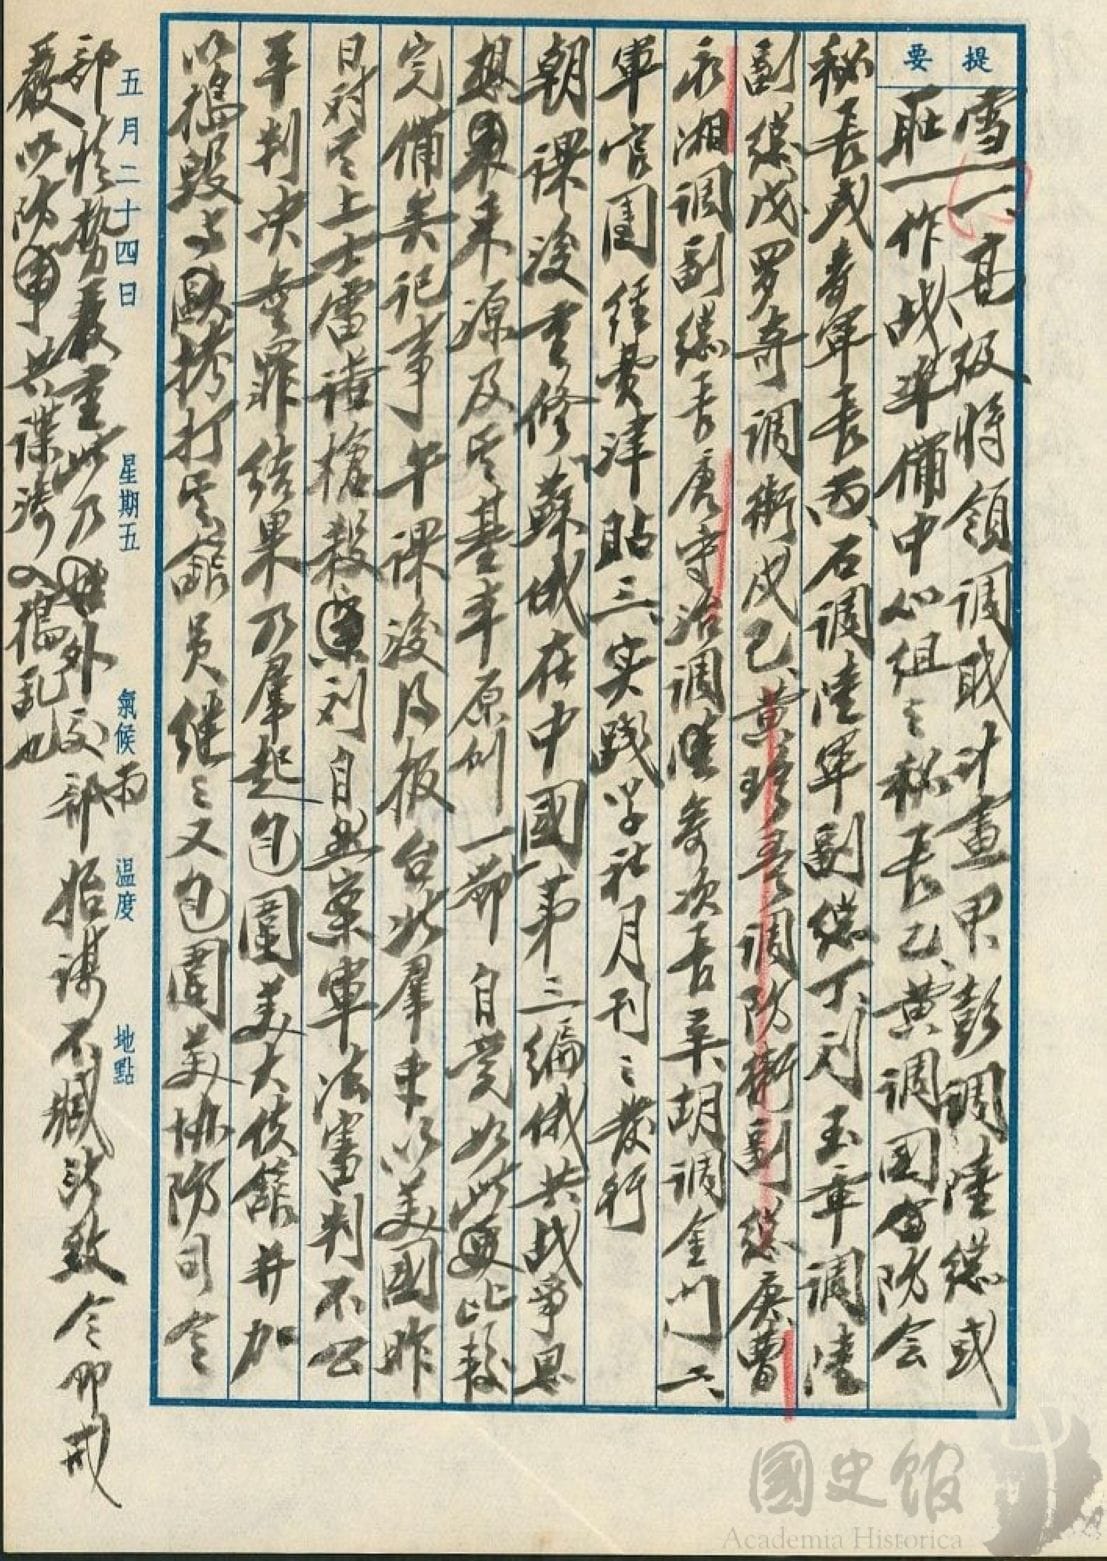 提要
雪
恥一、高級將領調职計畫甲、彭調陸總或
作战準備中心組之秘長乙、黄調国防会
秘長或参軍長丙、石調陸軍副總丁、刘玉章調陸
副總戊、罗奇調衛戍己、黄珍吾調防衛副總庚、曹
永湘調副總長唐守治調陸参次長辛、胡調金門二、
軍官團經費津貼三、实踐学社月刊之發行
朝課後重修蘇俄在中國第三編俄共战爭思
想来源及其基本原則一節自覚如此更比較
完備矣記事午課後得報台北羣衆以美國昨
日对其上士雷諾槍殺刘自然案軍法審判不公
平判決無罪結果乃羣起包圍美大使館并加
以搗毀与毆打其館員継之又包圍美协防司令
五月二十四日 星期五 氣候 雨 温度 地點
部情勢嚴重此乃外交部始謀不臧所致令即戒
嚴以防共諜滲入搗乱也
國史館
Academia Historica